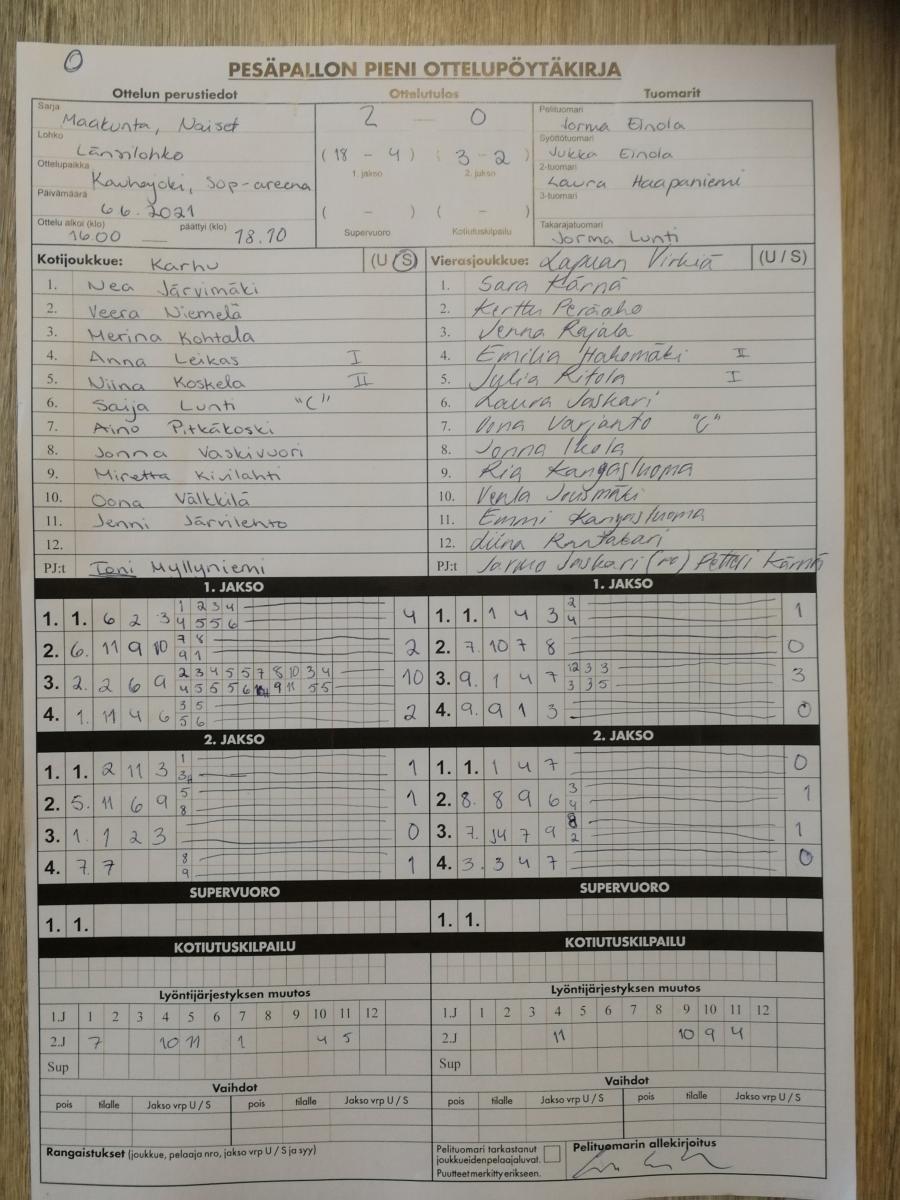 0
PESÄPALLON PIENI OTTELUPÖYTÄKIRJA
Ottelun perustiedot Ottelutulos Tuomarit
Sarja Maakunta, Naiset
Lohko Länsilohko
Ottelupaikka Kauhajoki, Sop-areena
Päivämäärä 6.6.2021
Ottelu alkoi (klo) 16.00 päättyi (klo) 18.10
2 – 0
( 18 – 4 ) ( 3 – 2 )
1. jakso 2. jakso
( – ) ( – )
Supervuoro Kotiutuskilpailu
Pelituomari Jorma Einola
Syöttötuomari Jukka Einola
2-tuomari Laura Haapaniemi
3-tuomari
Takarajatuomari Jorma Lunti
Kotijoukkue: Karhu (U / S)
1. Nea Järvimäki
2. Veera Niemelä
3. Merina Kohtala
4. Anna Leikas I
5. Niina Koskela II
6. Saija Lunti "C"
7. Aino Pitkäkoski
8. Jonna Vaskivuori
9. Miretta Kivilahti
10. Oona Välkkilä
11. Jenni Järvilehto
12.
PJ:t Toni Myllyniemi
Vierasjoukkue: Lapuan Virkiä (U / S)
1. Sara Kärnä
2. Kerttu Peräaho
3. Jenna Rajala
4. Emilia Hakomäki II
5. Julia Ritola I
6. Laura Jaskari
7. Oona Varjanto "C"
8. Jonna Ikola
9. Ria Kangasluoma
10. Venla Jousmäki
11. Emmi Kangasluoma
12. Liina Rantakari
PJ:t Jarmo Jaskari Petteri Kärnä
1. JAKSO
1. 1. 6 2 3 1 2 3 4 4
4 5 5 6
2. 6. 11 9 10 7 8 2
9 1
3. 2. 2 6 9 2 3 4 5 5 7 8 10 3 4 10
4 5 5 5 6 9 11 5 5
4. 1. 11 4 6 3 5 2
5 6
1. JAKSO
1. 1. 1 4 3 2 1
4
2. 7. 10 7 8 0
3. 9. 1 4 7 12 3 3 3
3 3 5
4. 9. 9 1 3 0
2. JAKSO
1. 1. 2 11 3 1 1
3
2. 5. 11 6 9 5 1
8
3. 1. 1 2 3 0
4. 7. 7 8 1
9
2. JAKSO
1. 1. 1 4 7 0
2. 8. 8 9 6 3 1
4
3. 7. 7 9 8 1
2
4. 3. 3 4 7 0
SUPERVUORO SUPERVUORO
1. 1. 1. 1.
KOTIUTUSKILPAILU KOTIUTUSKILPAILU
Lyöntijärjestyksen muutos
1.J 1 2 3 4 5 6 7 8 9 10 11 12
2.J 7 10 11 1 4 5
Sup
Lyöntijärjestyksen muutos
1.J 1 2 3 4 5 6 7 8 9 10 11 12
2.J 11 10 9 4
Sup
Vaihdot Vaihdot
pois tilalle Jakso vrp U / S pois tilalle Jakso vrp U / S
pois tilalle Jakso vrp U / S pois tilalle Jakso vrp U / S
Rangaistukset (joukkue, pelaaja nro, jakso vrp U / S ja syy)
Pelituomari tarkastanut
joukkueidenpelaajaluvat.
Puutteet merkitty erikseen.
Pelituomarin allekirjoitus